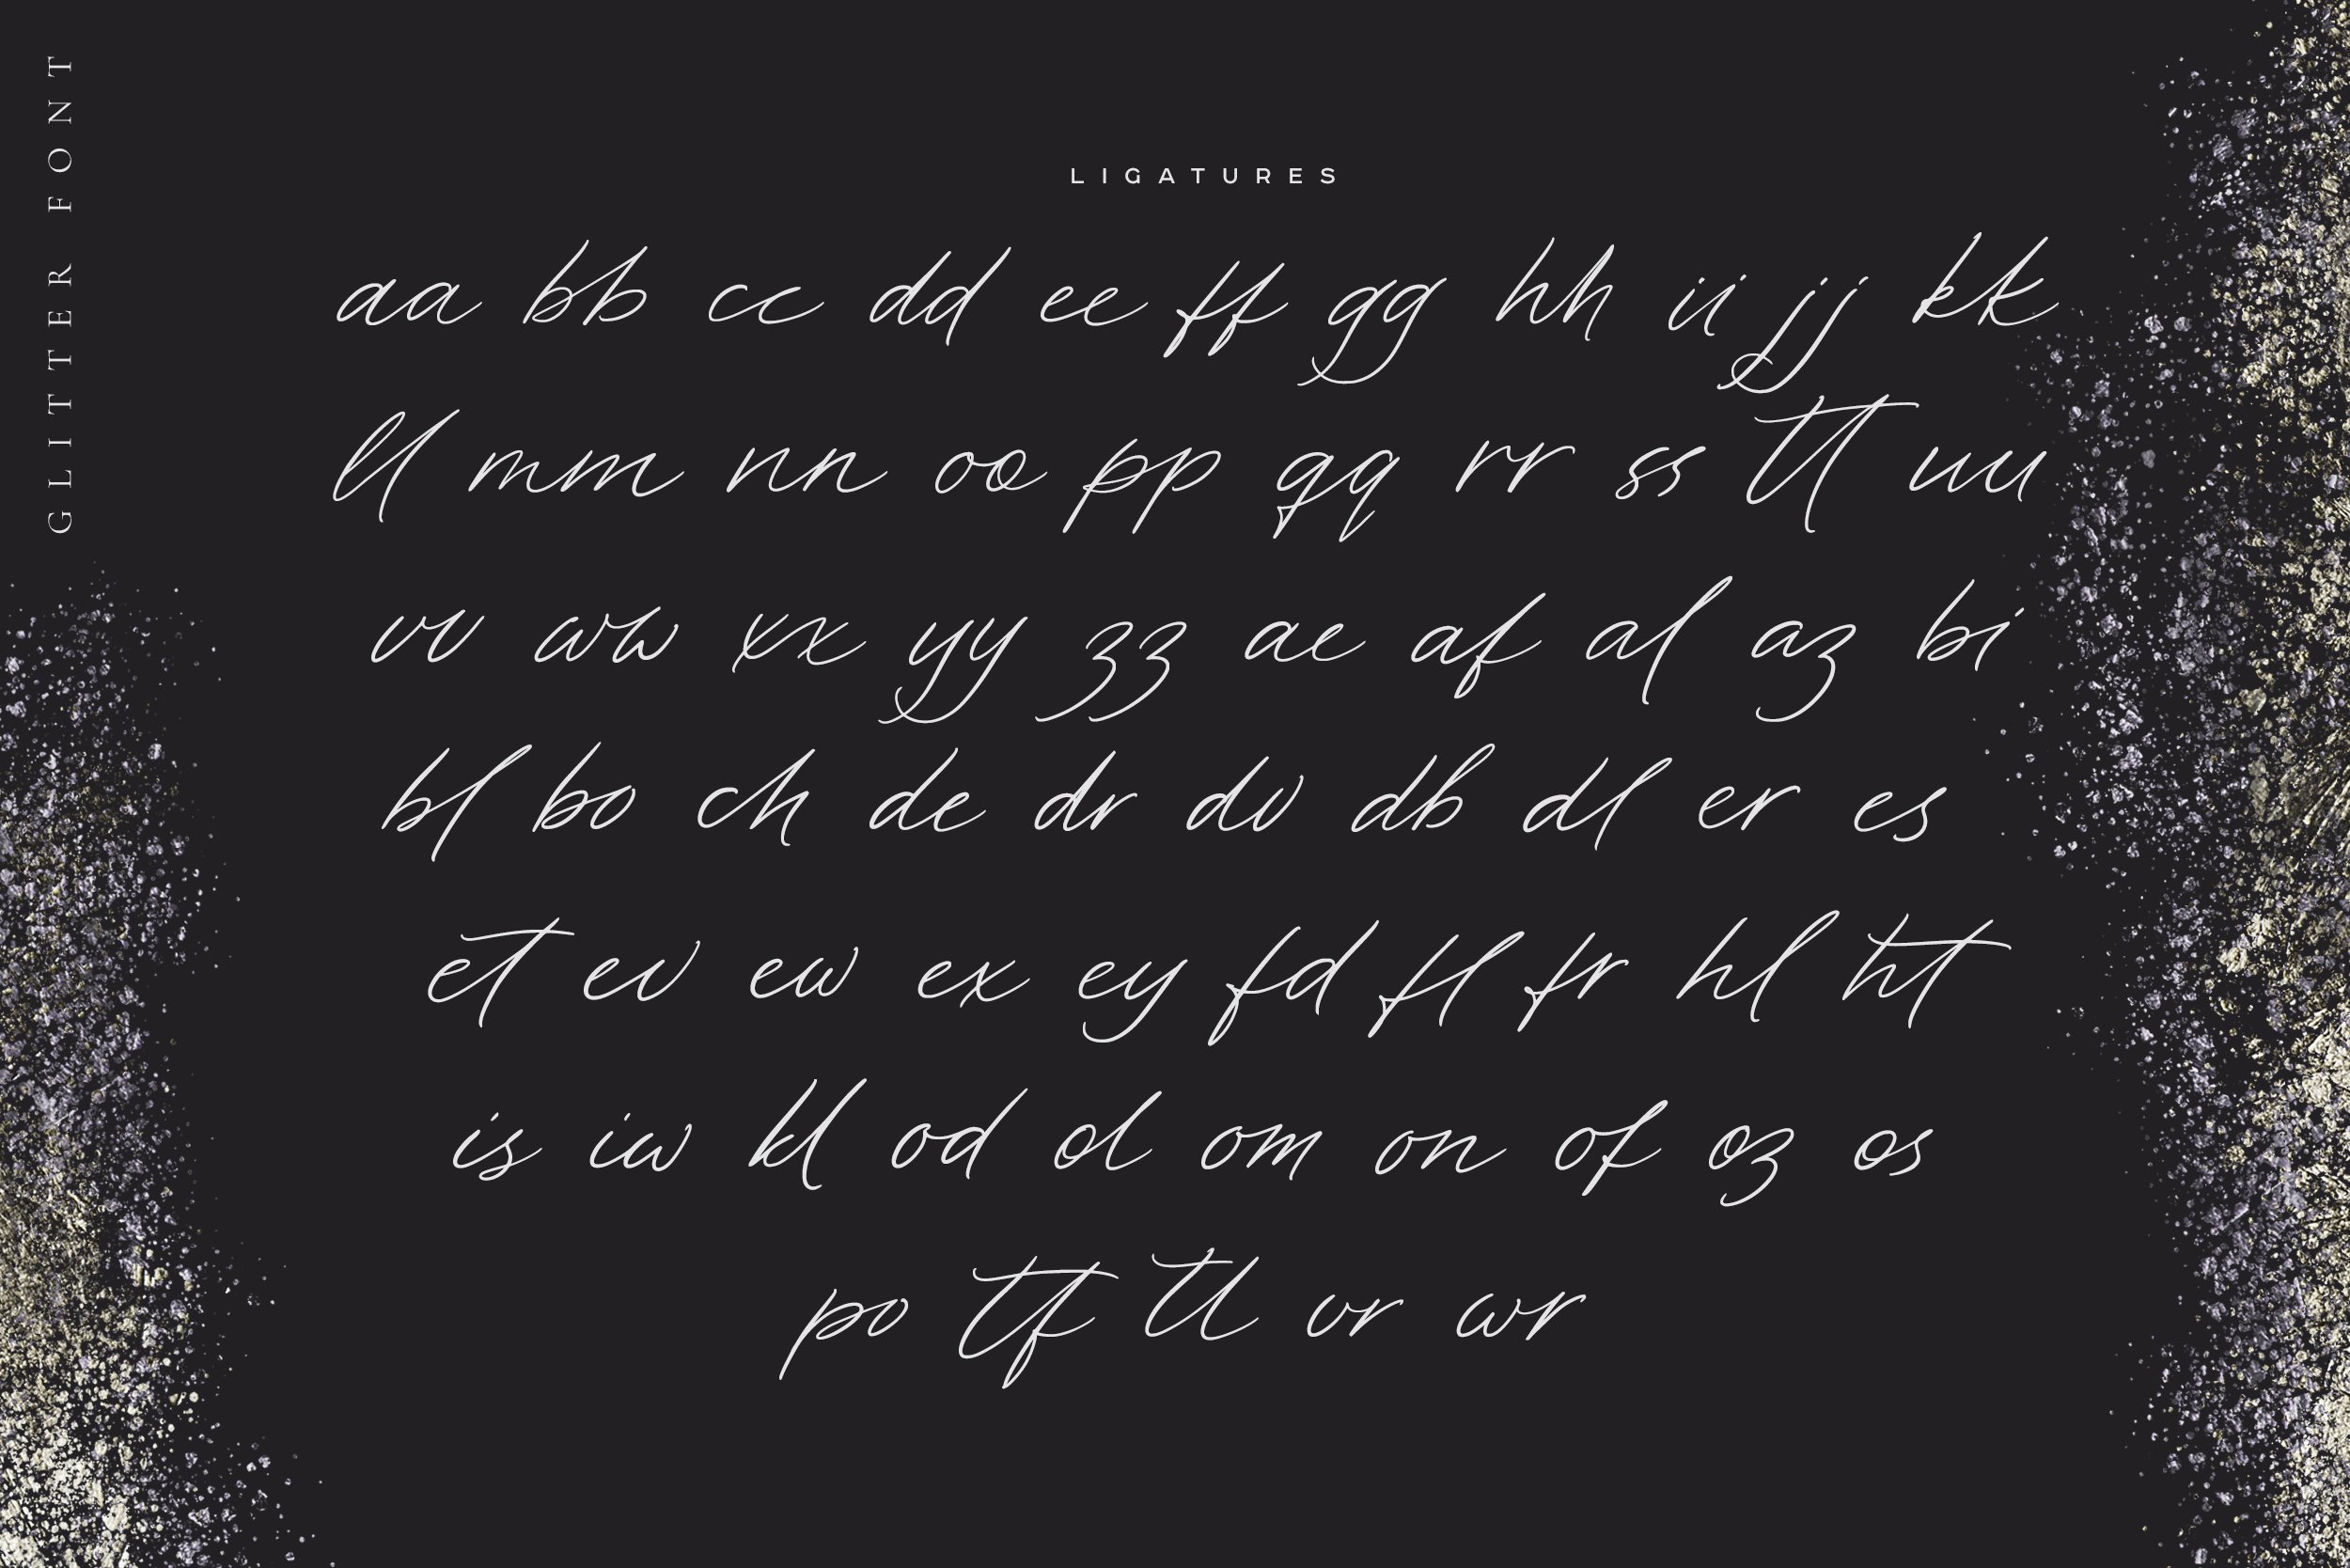 GLITTER FONT
LIGATURES
aa bb cc dd ee ff gg hh ii jj kk
ll mm nn oo pp qq rr ss tt uu
vv ww xx yy zz ae af al az bi
bl bo ch de dr dv db dl er es
et ev ew ex ey fd fl fr hl ht
is iw kl od ol om on of oz os
po tf tl vr wr